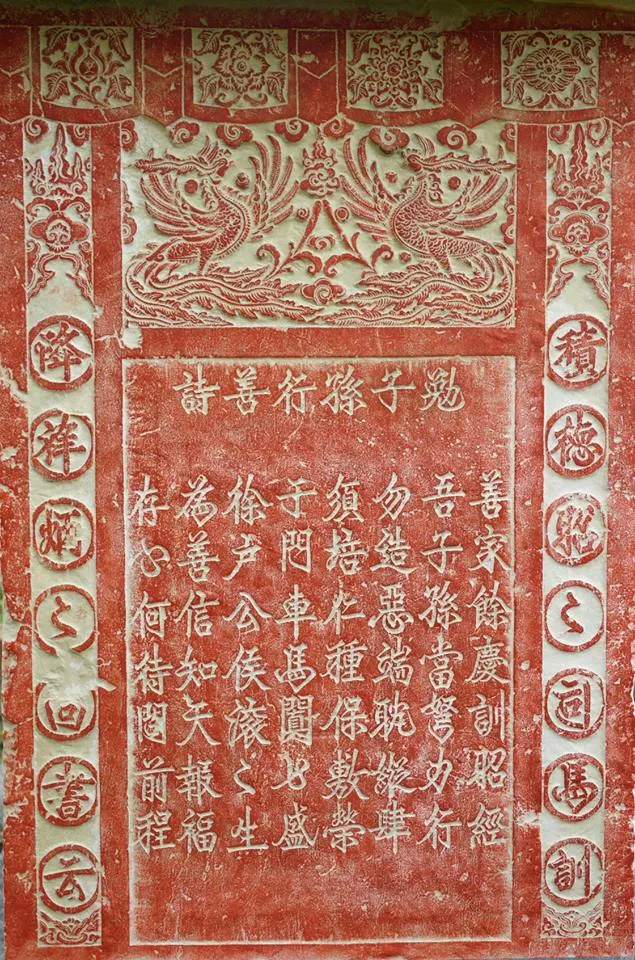 勉子孫行善詩
積德昭々司馬訓
善家餘慶訓昭經
吾子孫當努力行
勿造惡端躭縱肆
須培仁種保敷榮
于門車馬闐々盛
徐户公侯滾々生
為善信知天報福
存心何待問前程
降祥炳々尚書云